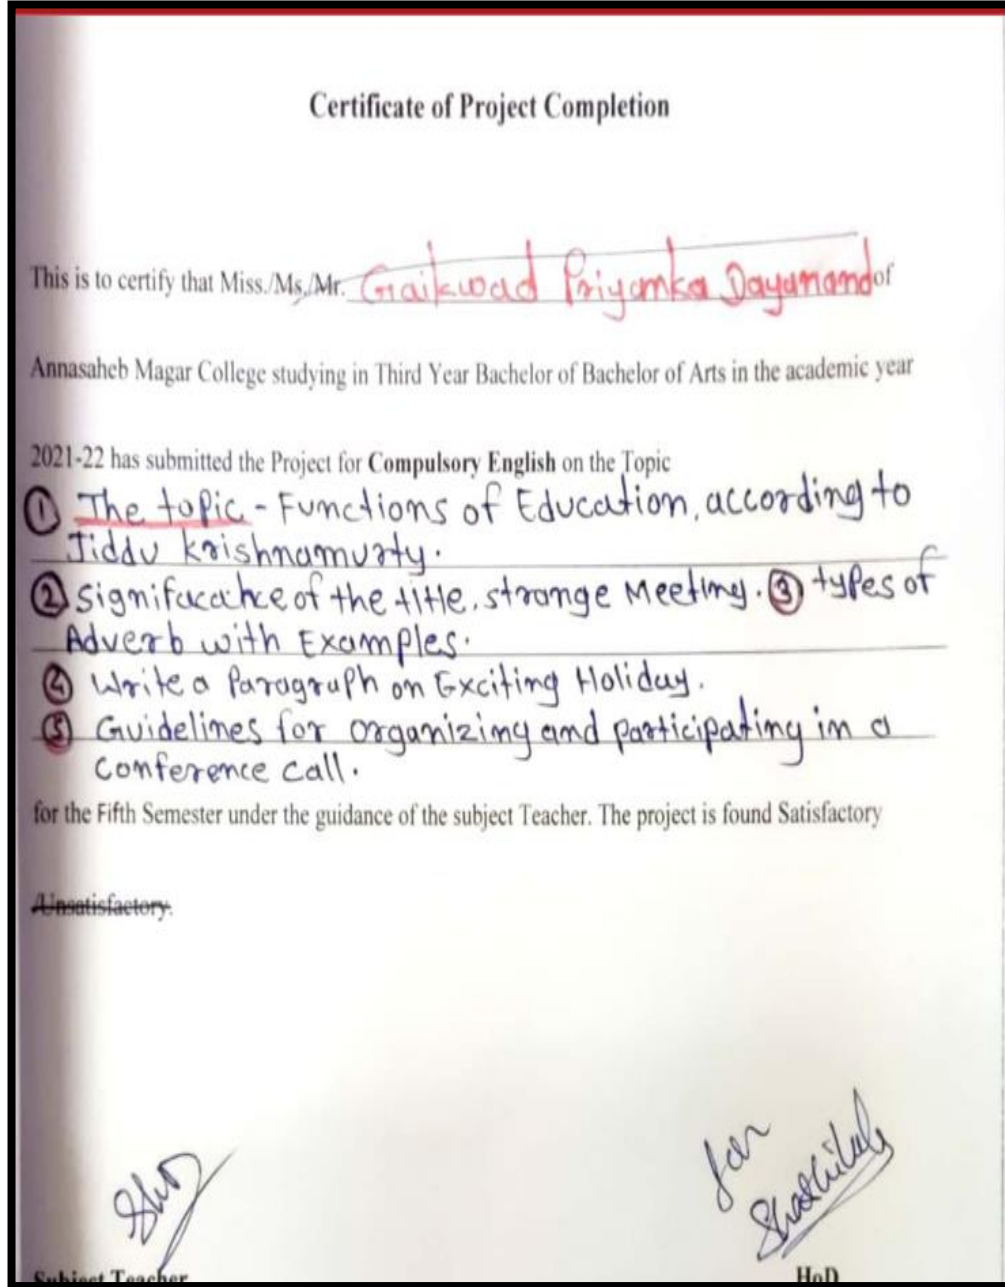 Certificate of Project Completion
This is to certify that Miss./Ms./Mr. Gaikwad Priyamka Dayanand of
Annasaheb Magar College studying in Third Year Bachelor of Bachelor of Arts in the academic year
2021-22 has submitted the Project for Compulsory English on the Topic
① The topic - Functions of Education, according to
Jiddu Krishnamurty.
② Signifacahce of the title, strange Meeting. ③ types of
Adverb with Examples.
④ Write a Paragraph on Exciting Holiday.
⑤ Guidelines for organizing and participating in a
Conference call.
for the Fifth Semester under the guidance of the subject Teacher. The project is found Satisfactory
/Unsatisfactory.
for
Subject Teacher
HoD